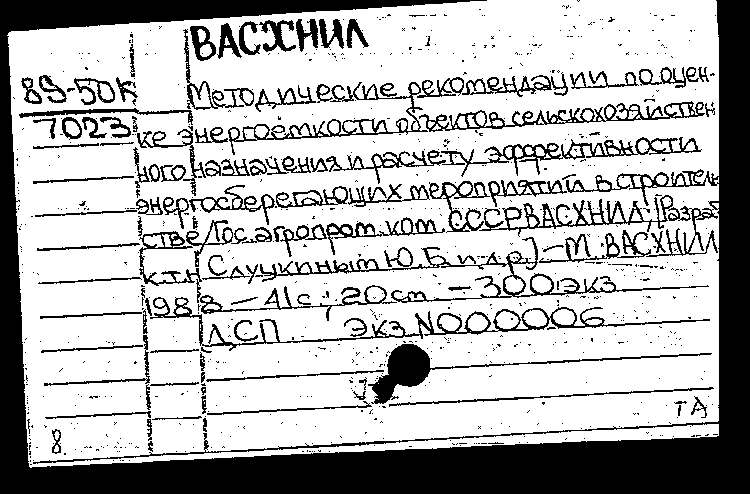 ВАСХНИЛ
89-50К
7023
Методические рекомендации по оцен-
ке энергоёмкости объектов сельскохозяйствен
ного назначения и расчету эффективности
энергосберегающих мероприятий в строитель
стве/Гос.агропром.ком.СССР,ВАСХНИЛ;[Разраб
к.т.н Слуцкиным Ю.Б и др.]-М.:ВАСХНИЛ
1988 - 41с ; 20см - 300экз
ДСП Экз N000006
ТА
8.